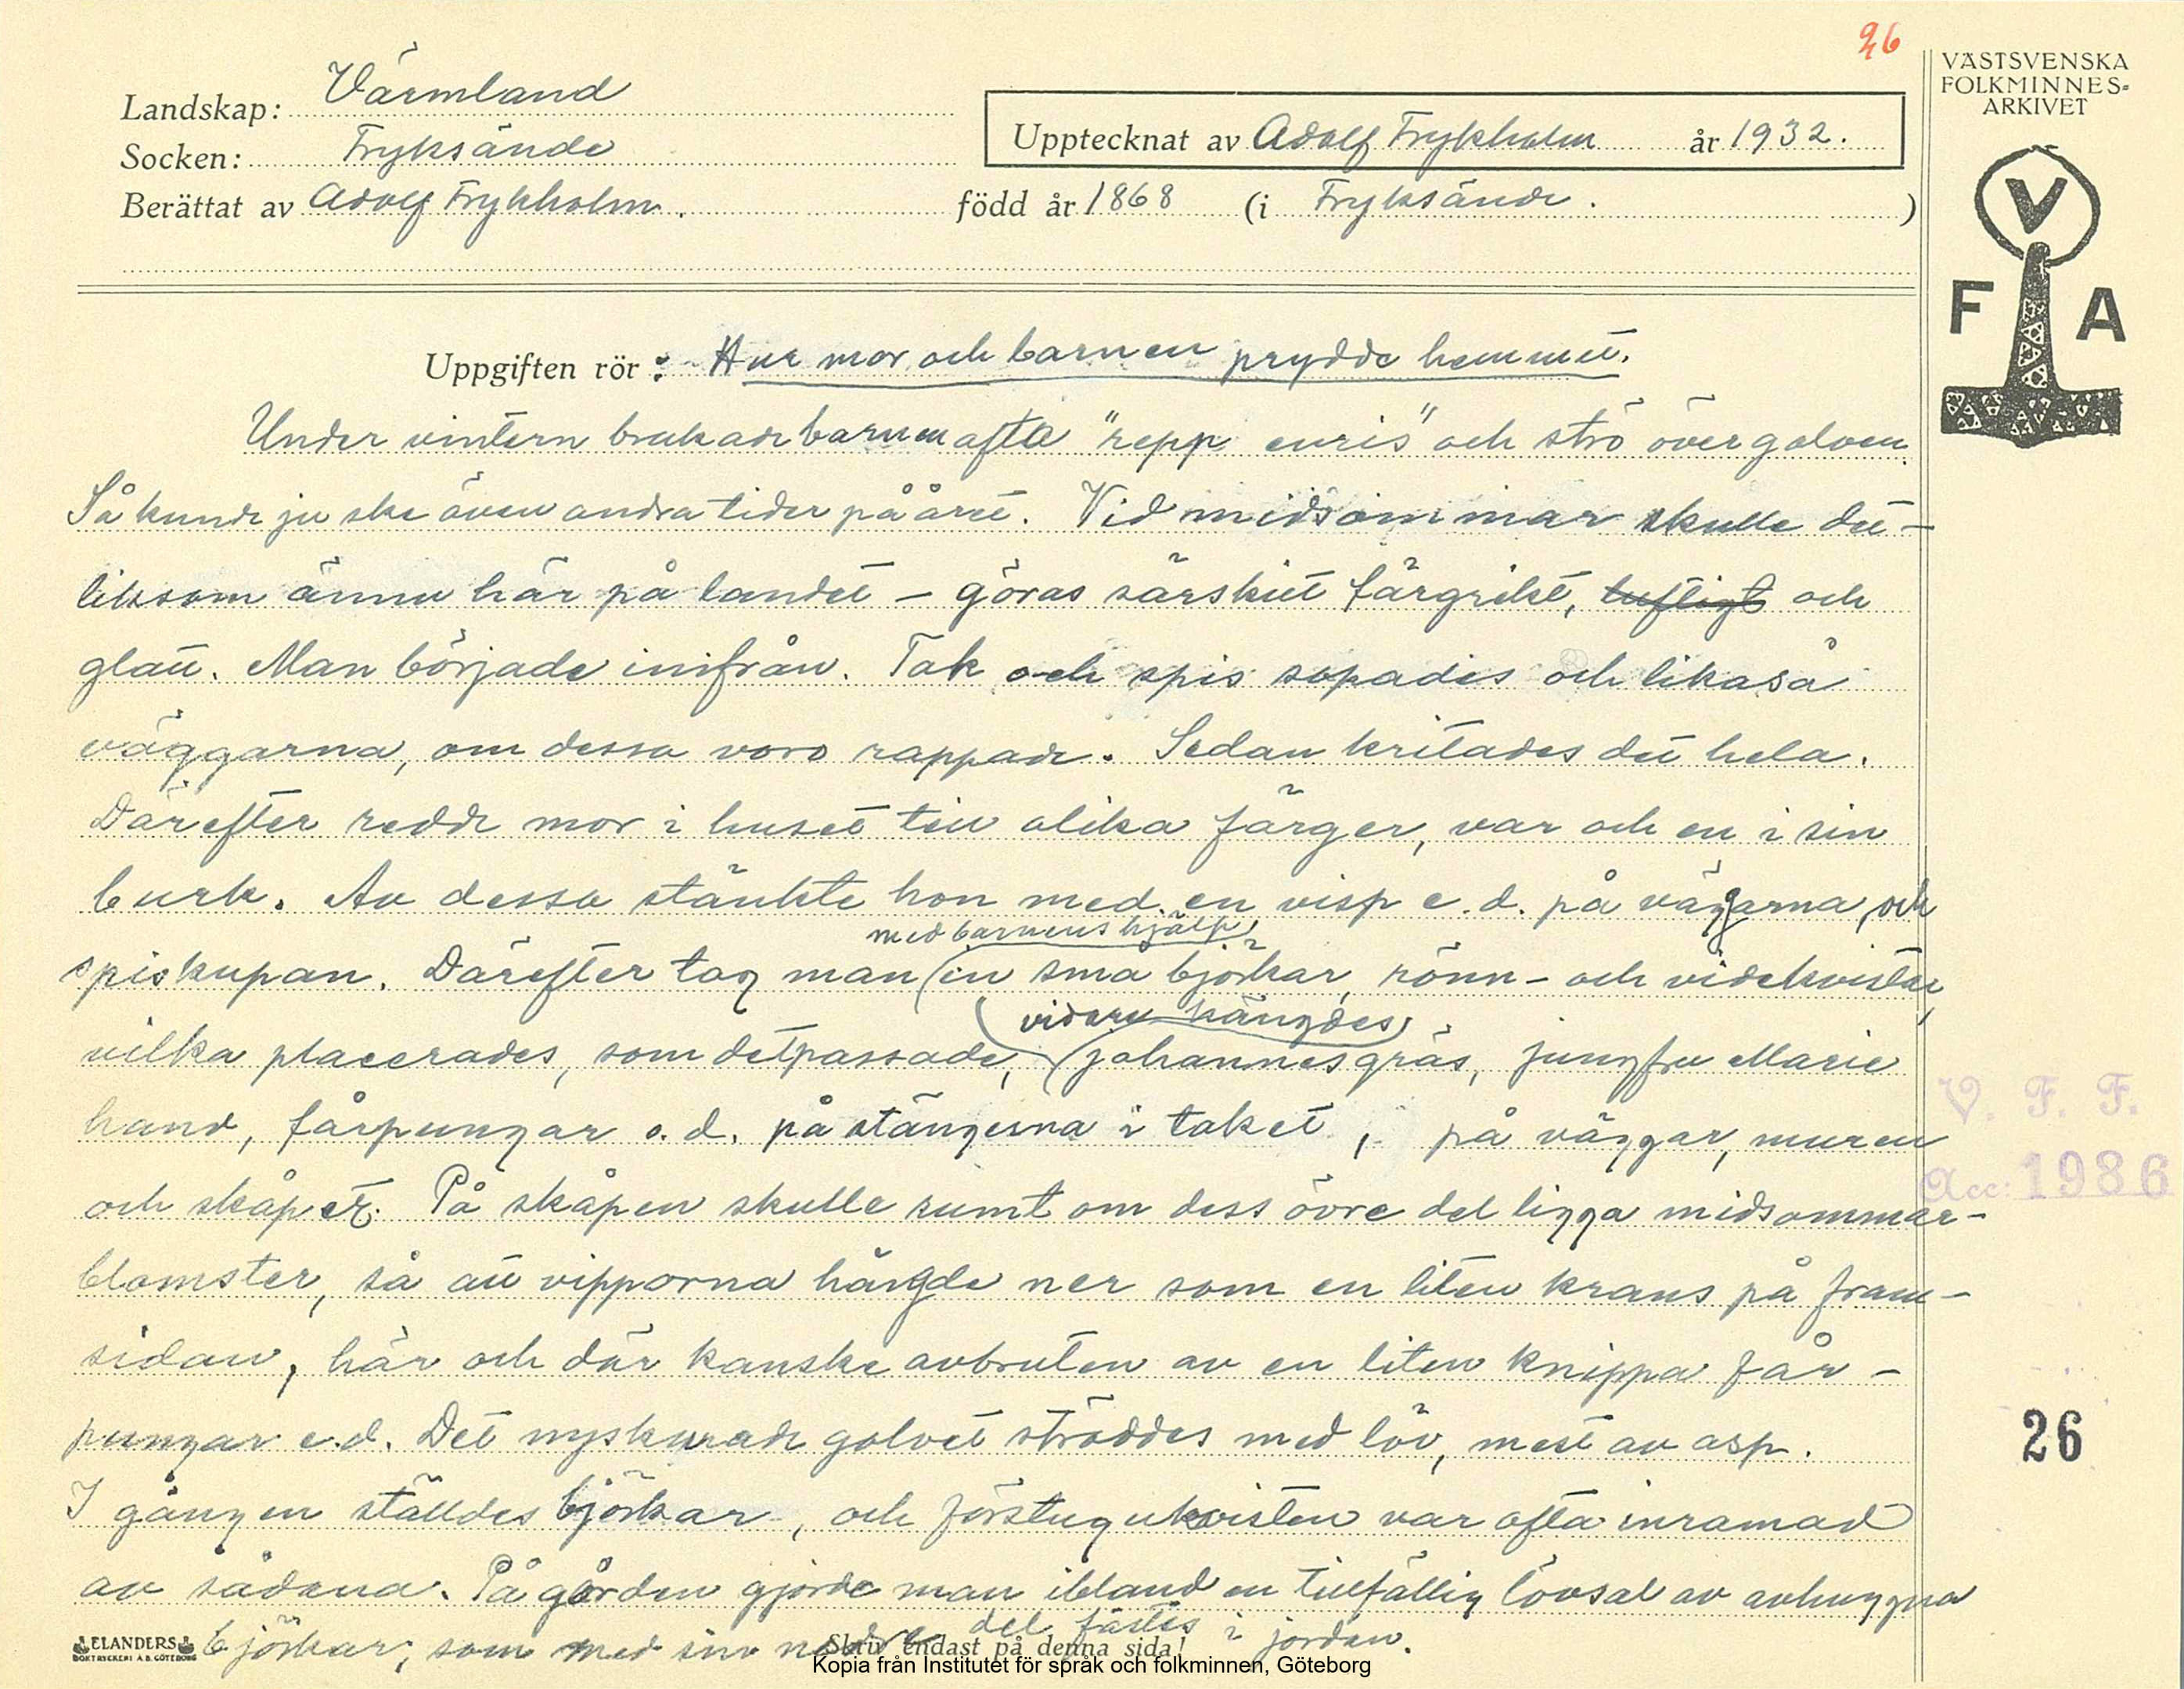 26
VÄSTSVENSKA
FOLKMINNES-
ARKIVET
Landskap: Värmland
Socken: Fryksände
Upptecknat av Adolf Frykholm år 1932.
Berättat av Adolf Frykholm. född år 1868 (i Fryksände. )
V
F A
Uppgiften rör: Hur mor och barnen prydde hemmet.
Under vintern brukade barnen ofta "repp enris" och strö över golven.
Så kunde ju ske även andra tider på året. Vid midsommar skulle det -
liksom ännu här på landet - göras särskilt färgrikt, luftigt och
glatt. Man började inifrån. Tak och spis sopades och likaså
väggarna, om dessa voro rappade. Sedan kritades det hela.
Därefter redde mor i huset till olika färger, var och en i sin
burk. Av dessa stänkte hon med en visp e.d. på väggarna och
med barnens hjälp
spiskupan. Därefter tog man in små björkar, rönn- och videkvistar,
vidare hängdes
vilka placerades, som det passade, johannesgräs, jungfru Marie
hand, fårpungar o.d. på stängerna i taket, på väggar, muren
V. F. F.
och skåpet. På skåpen skulle runt om dess övre del ligga midsommar-
Acc: 1986
blomster, så att vipporna hängde ner som en liten krans på fram-
sidan, här och där kanske avbruten av en liten knippa får-
pungar e.d. Det nyskurade golvet ströddes med löv, mest av asp.
26
I gången ställdes björkar, och förstugukvisten var ofta inramad
av sådana. På gården gjorde man ibland en tillfällig lövsal av avhuggna
björkar, som med sin nedre del fästes i jorden.
ELANDERS
BOKTRYCKERI A.B. GÖTEBORG
Skriv endast på denna sida!
Kopia från Institutet för språk och folkminnen, Göteborg